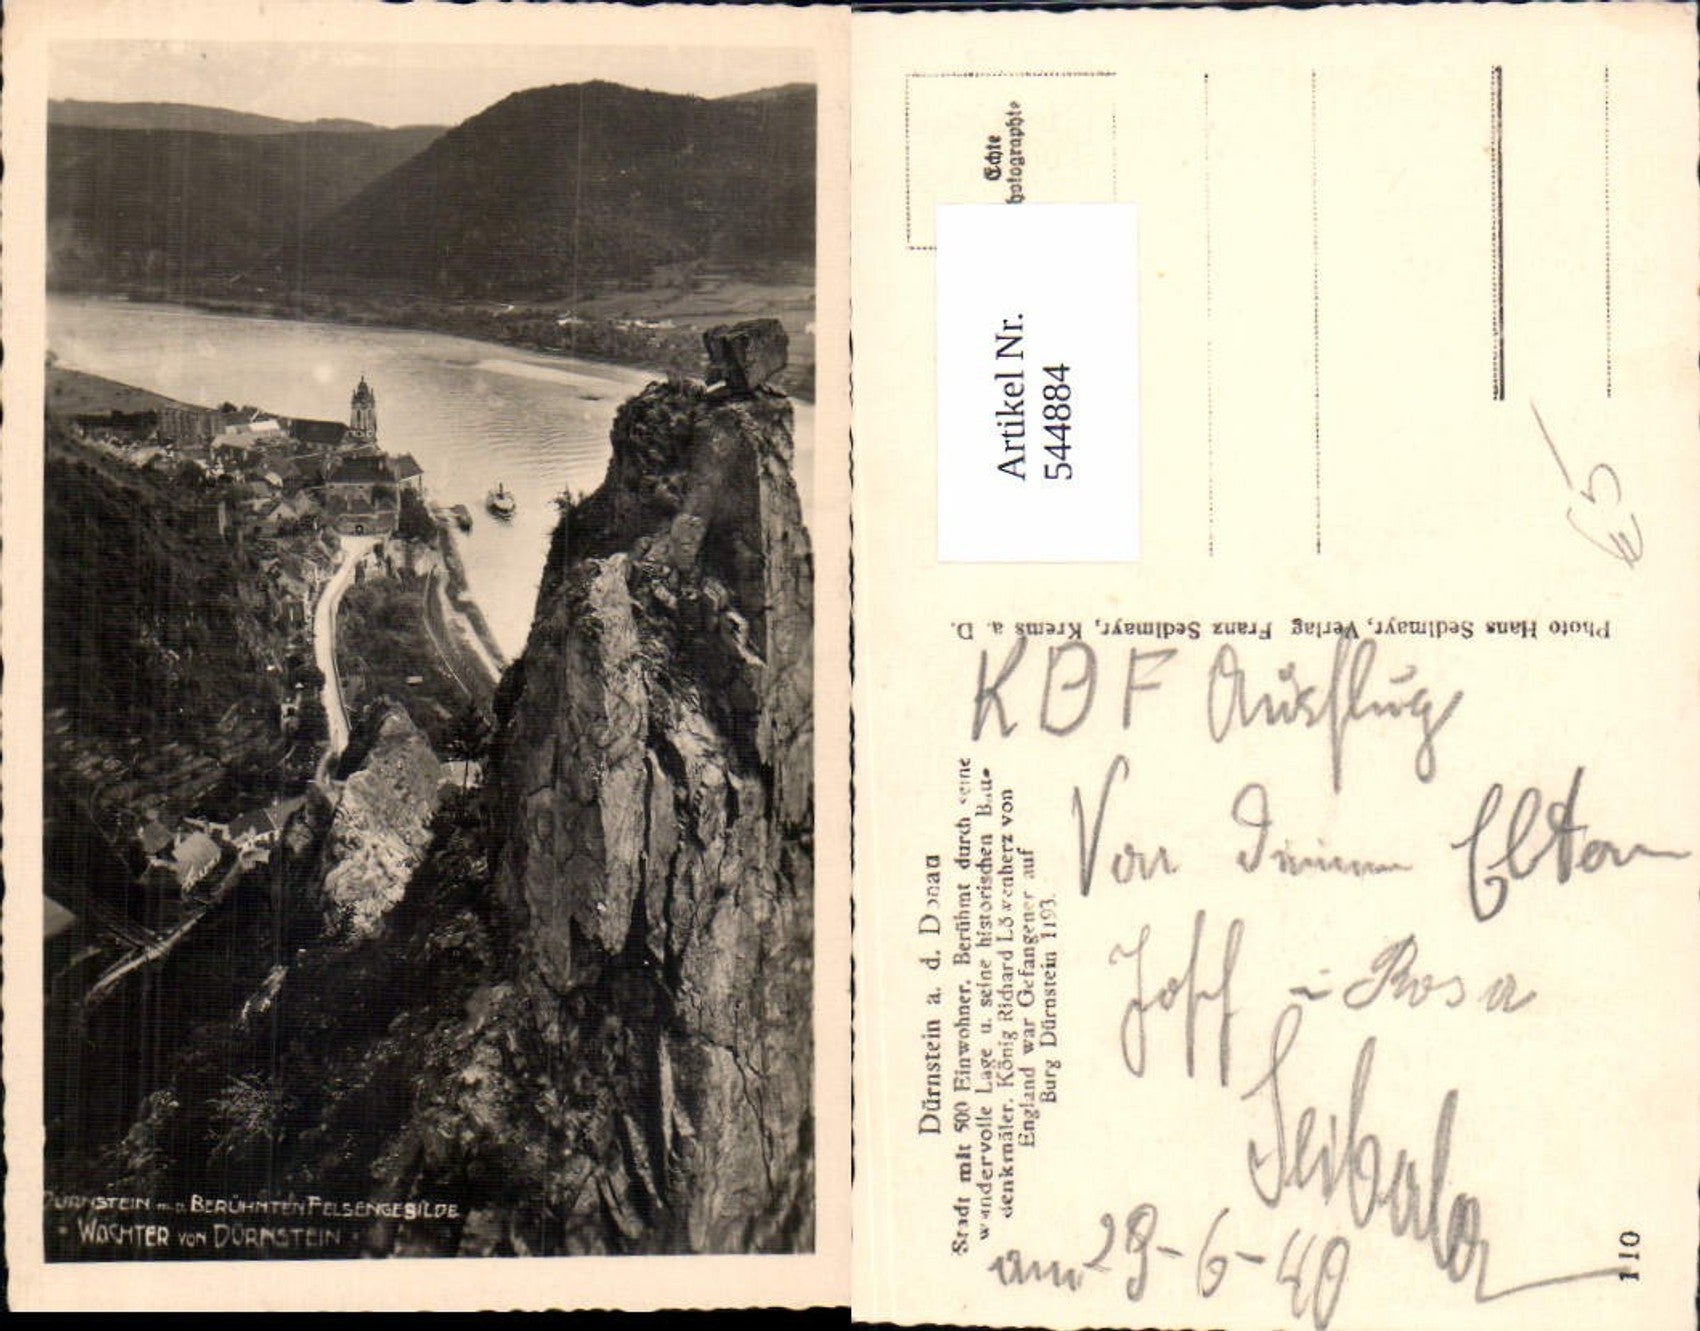 DÜRNSTEIN M. D. BERÜHMTEN FELSENGEBILDE
"WÄCHTER VON DÜRNSTEIN"
Echte
Photographie
Artikel Nr.
544884
€5
Photo Hans Sedlmayr, Verlag Franz Sedlmayr, Krems a. D.
Dürnstein a. d. Donau
Stadt mit 500 Einwohner. Berühmt durch seine
wundervolle Lage u. seine historischen Bau-
denkmäler. König Richard Löwenherz von
England war Gefangener auf
Burg Dürnstein 1193.
KDF Ausflug
Von Deinen Eltern
Josef u Rosa
am 29-6-40
110